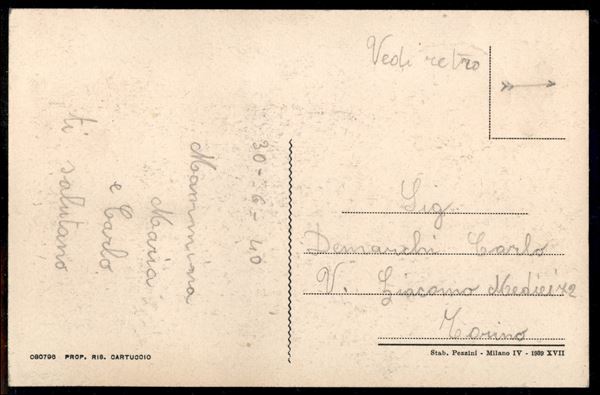 Vedi retro
30-6-40
Mammina
Maria
e Carlo
ti salutano
Sig
Demarchi Carlo
V. Giacomo Medici 72
Torino
080796 PROP. RIS. CARTUCCIO
Stab. Pezzini - Milano IV - 1939 XVII